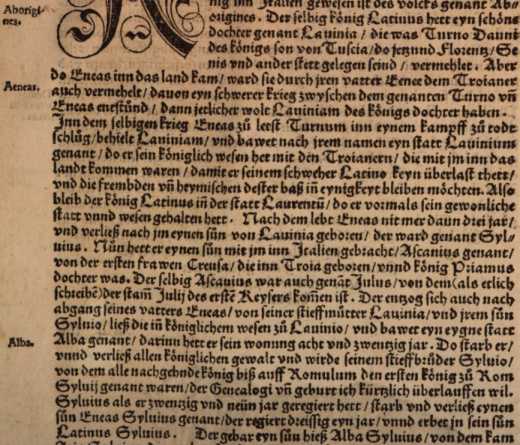 nig inn Italien gewesen ist des volcks genant Ab⸗
Aborigi⸗
nes.
origines. Der selbig König Latinus hett eyn schöne
dochter genant Lauinia / die was Turno Dauni
des königs son von Tuscia / do jezund Florentz / Se
nis vnd ander stett gelegen seind / vermehlet. Aber
do Eneas inn das land kam / ward sie durch jren vatter Enee dem Troianer
Aeneas.
auch vermehelt / dauon eyn schwerer krieg zwyschen dem genanten Turno vñ
Eneas entstünd / dann jetlicher wolt Lauiniam des königs dochter haben.
Inn dem selbigen krieg Eneas zu letst Turnum inn eynem kampff zů todt
schlůg / behielt Lauiniam / vnd bawet nach jrem namen eyn statt Lauinium
genant / do er sein königlich wesen het mit den Troianern / die mit jm inn das
landt kommen waren / damit er seinem schweher Latino keyn überlast thett /
vnd die frembden vñ heymischen dester baß in eynigkeyt bleiben möchten. Also
bleib der könig Latinus in der statt Laurentū / do er vormals sein gewonliche
statt vnnd wesen gehalten hett. Nach dem lebt Eneas nit mer daun drei jar /
vnd verließ nach jm eynen sůn von Lauinia geboren / der ward genant Syl⸗
uius. Nůn hett er eynen sůn mit jm inn Italien gebracht / Ascanius genant /
von der ersten frawen Creusa / die inn Troia geboren / vnnd König Priamus
dochter was. Der selbig Ascanius war auch genāt Julus / von dem (als etlich
schreibē) der stam̃ Julij des erstē Keysers kom̃en ist. Der entzog sich auch nach
abgang seines vatters Eneas / von seiner stieffmůtter Lauinia / vnd jrem sůn
Syluio / ließ die in königlichem wesen zů Lauinio / vnd bawet eyn eygne statt
Alba.
Alba genant / darinn hett er sein wonung acht vnd zwentzig jar. Do starb er /
vnnd verließ allen königlichen gewalt vnd wirde seinem stieffbrůder Syluio /
von dem alle nachgehnde könig biß auff Romulum den ersten könig zů Rom
Syluij genant waren / der Genealogi vñ geburt ich kürtzlich überlauffen wil.
Syluius als er zwentzig vnd neün jar geregiert hett / starb vnd verließ eynen
sůn Eneas Syluius genant / der regiert dreissig eyn jar / vnnd erbet jn sein sůn
Latinus Syluius. Der gebar eyn sůn hieß Alba Syluius / von dem kam